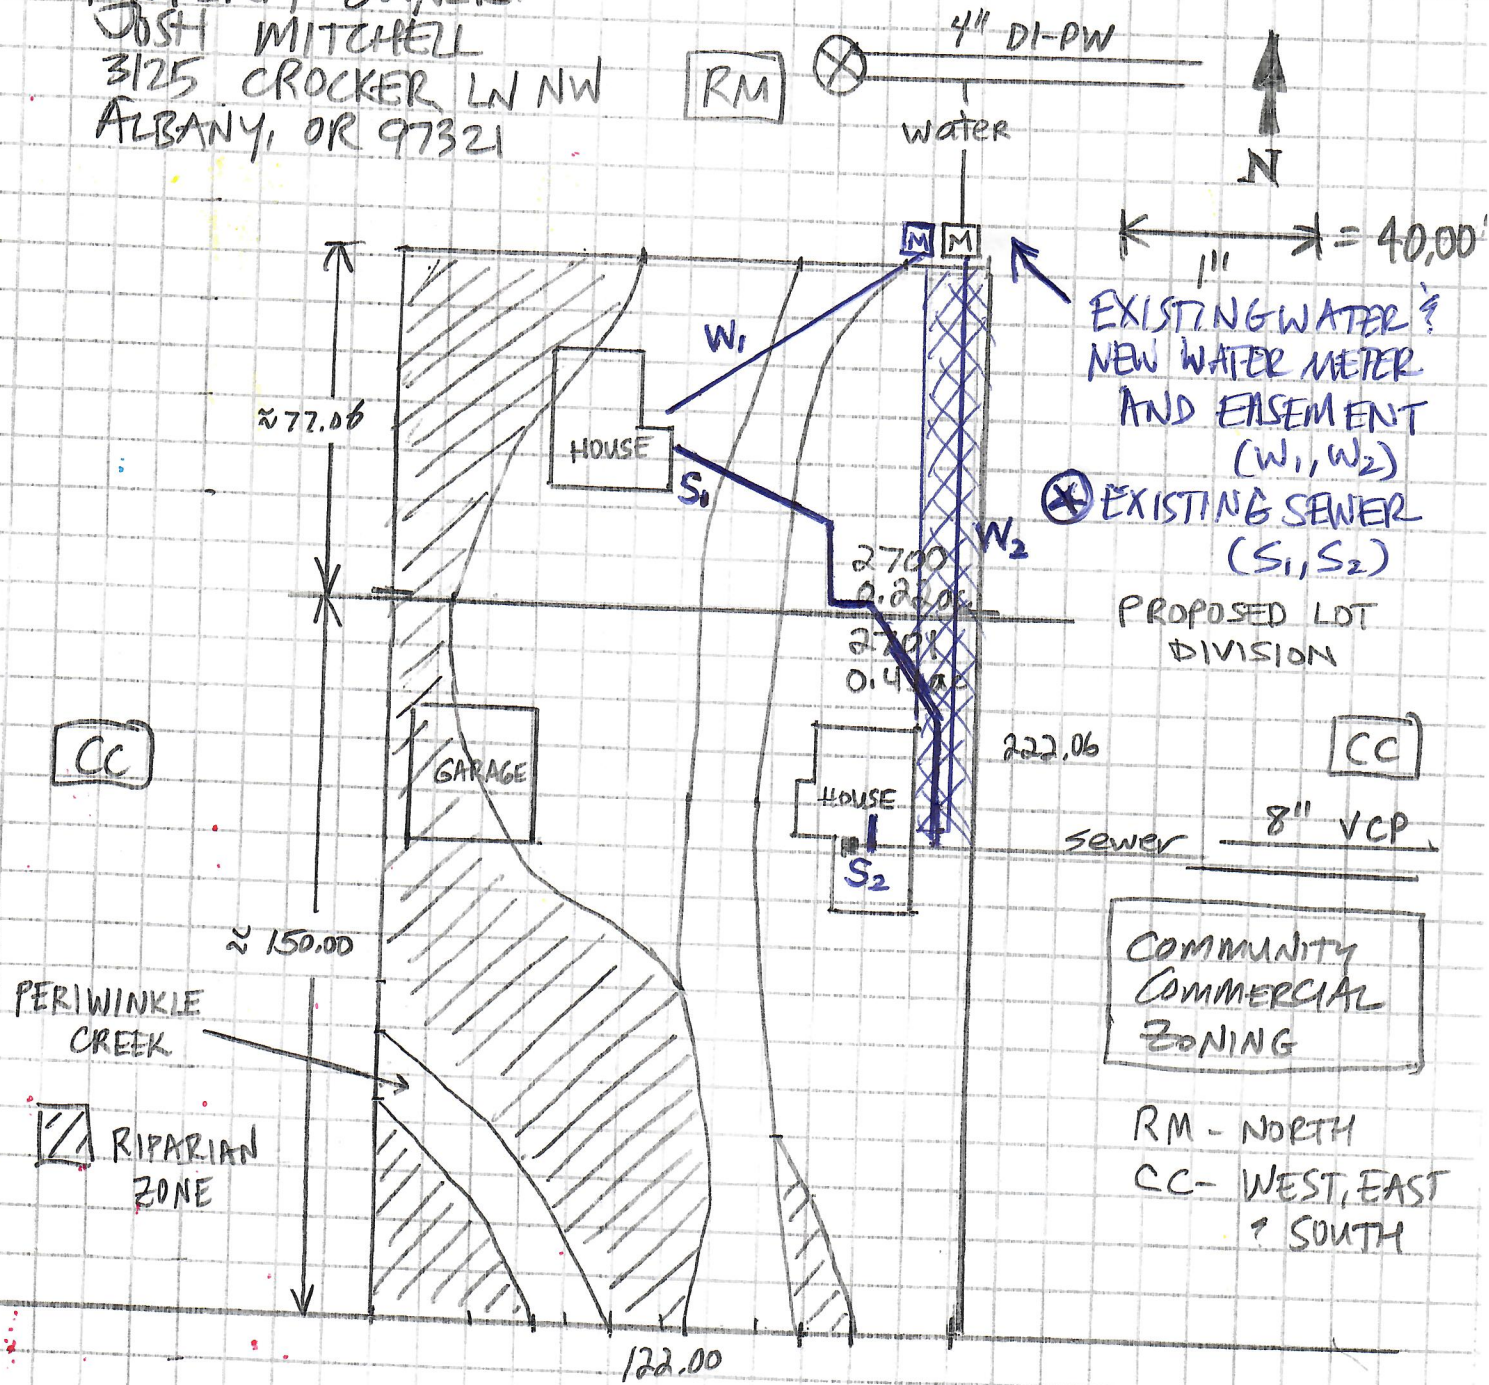 JOSH MITCHELL
3125 CROCKER LN NW
ALBANY, OR 97321
RM
4" DI-PW
water
N
M
M
1" = 40.00'
EXISTING WATER &
NEW WATER METER
AND EASEMENT
(W1, W2)
EXISTING SEWER
(S1, S2)
W1
≈77.06
HOUSE
S1
W2
2700
0.22ac
PROPOSED LOT
DIVISION
2701
CC
GARAGE
HOUSE
222.06
CC
S2
sewer
8" VCP
≈ 150.00
PERIWINKLE
CREEK
COMMUNITY
COMMERCIAL
ZONING
RIPARIAN
ZONE
RM - NORTH
CC - WEST, EAST
& SOUTH
122.00